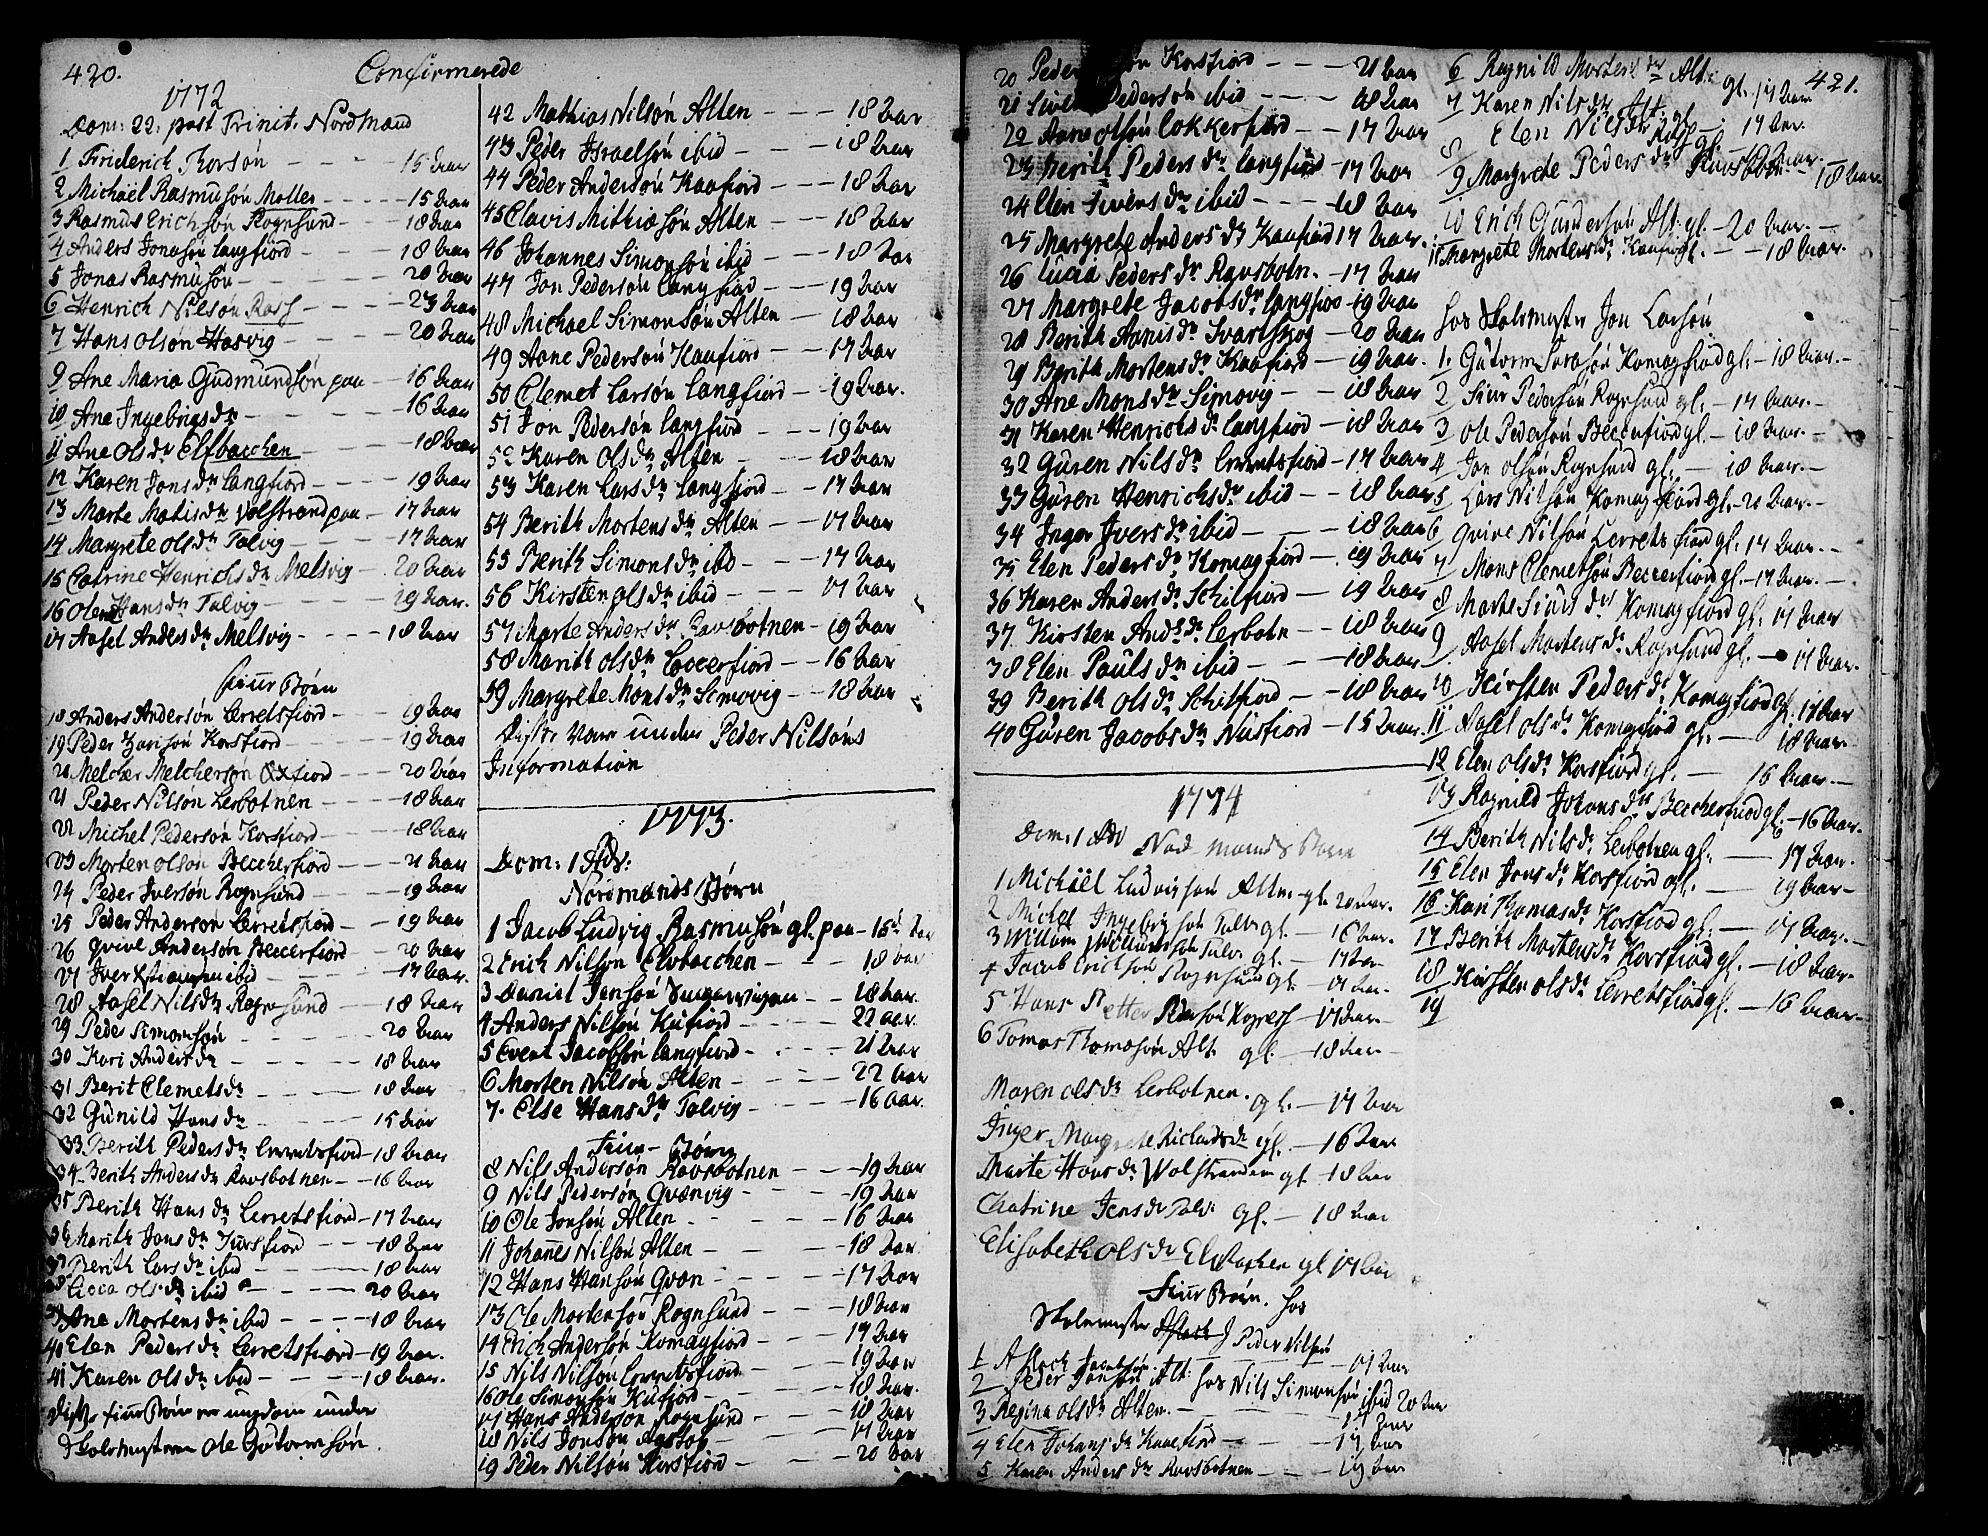 420.
Confirmerede
1772
Dom: 22. post Trinit. Nordmænd
1 Friderich Thorsøn - - - 15 aar
2 Michael Rasmusøn Møller - - - 15 aar
3 Rasmus Erichsøn Rognsund - - 18 aar
4 Anders Jonasøn Langfiord - - 18 aar
5 Jonas Rasmusøn - - - 20 aar
6 Henrich Nilsøn - - - 23 aar
7 Hans Olsøn Hasvig - - - 20 aar
9 Ane Maria Gudmundsøn paa - - 16 aar
10 Ane Ingebrigsdr - - - 16 aar
11 Ane Olsdr Elfbacchen - - 18 aar
12 Karen Jonsdr Langfiord - - - 19 aar
13 Marte Matisdr Volstrand paa - 17 aar
14 Margrete Olsdr Talvig - - - 17 aar
15 Catrine Henrichsdr Melsvig - 20 aar
16 Olene Hansdr Talvig - - - 19 aar.
17 Aasel Andersdr Melsvig - - - 18 aar
Finn Børn
18 Anders Andersøn Lerretsfiord - - 19 aar
19 Peder Korsfiord - - - 19 aar
20 Melcher Melchersøn Oxfiord - - - 20 aar
21 Peder Nilsøn Lerbotnen - - - 18 aar
22 Michel Pedersøn Korsfiord - - - 18 aar
23 Morten Olsøn Beccherfiord - - - 21 aar
24 Peder Iversøn Rognsund - - - 19 aar
25 Peder Andersøn Lerretsfiord - - 19 aar
26 Qvive Andersøn Beccerfiord 20 aar
27 Iver ibid - - - 17 aar.
28 Aasel Nilsdr Rognsund - - 18 aar
29 Peder Simonsøn - - - 20 aar
30 Kari Andersdr - - - 18 aar
31 Berit Clemetsdr - - - 18 aar
32 Gunild Hansdr - - - 15 aar
33 Berith Pedersdr Lerretsfiord - 18 aar
34 Berith Andersdr Ravsbotnen - - 16 aar
35 Berith Hansdr Lerretsfiord - 17 aar
36 Marith Jonsdr - - - 18 aar
37 Berith Larsdr ibid - - - 18 aar
38 Olsdr ibid - - - 20 aar
39 Ane Mortensdr ibid - - - 18 aar
40 Elen Pedersdr Lerretsfiord - 19 aar.
41 Karen Olsdr ibid - - - 18 aar.
Disse finn Børn er ungdom under
Skolemesteren Ole Gutormsøn.
42 Mathias Nilsøn Alten - - - 18 aar
43 Peder Israelsøn ibid - - - 18 aar
44 Peder Andersøn Kaafiord - - - 18 aar
45 Clavis Mithiæsøn Alten - - - 18 aar
46 Johannes Simonsøn ibid - - - 18 aar
47 Jon Pedersøn Langfiord - - - 19 aar
48 Michael Simonsøn Alten - 18 aar
49 Aane Pedersøn Kaafiord - - 17 aar
50 Clemet Larsøn Langfiord - - 19 aar.
51 Jon Pedersøn Langfiord - - - 19 aar
52 Karen Olsdr Alten - - - 18 aar
53 Karen Larsdr Langfiord - - 17 aar
54 Berith Mortensdr Alten - - - 17 aar
55 Berith Simonsdr ibid - - - 17 aar
56 Kirsten Olsdr ibid - - - 17 aar
57 Marte Andersdr Ravsbotnen - 19 aar
58 Marith Olsdr Loccerfiord - - 16 aar
59 Margrete Monsdr Simovig - - 18 aar
Disse vare under Peder Nilsøns
Information
1773.
Dom: 1 Adv:
Nordmands Børn
1 Jacob Ludvig Rasmusøn gl. paa - 15 aar
2 Erich Nilsøn Elvbacchen - - - 18 aar
3 Daniel Jensøn - - 18 aar.
4 Anders Nilsøn Kufiord - - - 22 aar.
5 Event Jacobsøn Langfiord - - - 21 aar
6 Morten Nilsøn Alten - - - 22 aar
7. Else Hansdr Talvig - - - 16 aar.
Finn - Børn
8 Nils Andersøn Ravsbotnen - - - 19 aar
9 Nils Pedersøn Qvænvig - - - 19 aar
10 Ole Jonsøn Alten - - - 16 aar
11 Johanes Nilsøn Alten - - - 18 aar.
12 Hans Hansøn Qvæn - - - 17 aar
13 Ole Mortensøn Rognsund - - - 18 aar
14 Erich Andersøn Komagfiord - - - 17 aar
15 Nils Nilsøn Lerretsfiord - - - 19 aar
16 Ole Simonsøn Kufiord - - - 18 aar.
17 Hans Andersøn Rognsund - - - 18 aar
18 Nils Jonsøn - - - 17 aar
19 Peder Nilsøn Korsfiord - - - 20 aar
20 Korsfiord - - - 21 aar
21 Pedersøn ibid - - - 18 aar
22 Aane Olsøn Lokkerfiord - - 17 aar
23 Berith Pedersdr Langfiord - 17 aar
24 Elen Sivensdr ibid - - - 18 aar
25 Margrete Andersdr Kaafiord 17 aar.
26 Lucia Pedersdr Ravsbotn. - 17 aar
27 Margrete Jacobsdr Langfiord - 19 aar
28 Berith Aanisdr Svartskog - 20 aar
29 Berith Mortensdr Kaafiord - 19 aar.
30 Ane Monsdr Simovig - - 18 aar
31 Karen Henrichsdr Langfiord - 18 aar
32 Guren Nilsdr Lerretsfiord - 17 aar
33 Guren Henrichsdr ibid - - 18 aar
34 Inger Iversdr ibid - - - 18 aar
35 Elen Pedersdr Komagfiord - 19 aar
36 Karen Andersdr Schilfiord - 19 aar
37. Kirsten Andrsdr Lerbotn - - 18 aar
38 Elen Paulsdr ibid - - - 18 aar
39 Berith Olsdr Schilfiord - - 18 aar
40 Guren Jacobsdr Nusfiord - - 15 aar.
1774
Dom: 1 Adv Nordmands Børn
1 Michäel Ludvigsøn Alten gl. 20 aar.
2 Michel Ingebrigsøn Talv. gl. - 16 aar.
3 Willum Willumsøn Talv. gl. - 17 aar
4 Jacob Erichsøn Rognsund gl. - 17 aar.
5 Hans Petter Pedersøn - 17 aar.
6 Tomas Thomasøn Alt. gl. - 18 aar -
Maren Olsdr Lerbotnen. gl. - 17 aar
Inger Margrete Richardsdr gl. - 16 aar
Marte Hansdr Wolstranden gl. - 18 aar
Chatrine Jensdr Talv. gl. - 18 aar
Elisabeth Olsdr Elvbachen gl 17 aar
Finn Børn. hos
Skolemester Peder Nilsøn
1 Aslach Jacobsøn. - 17 aar
2 Peder Jonsøn Alt. hos Nils Simonsøn ibid 20 aar
3 Regina Olsdr Alten. - - - 17 aar
4 Elen Johansdr Kaaefiord - - - 17 aar
5 Karen Andersdr Ravsbotnen - - - 19 aar
421.
6 Ragnild Mortensdr Alt. gl. 17 aar
7 Karen Nilsdr Alt. gl. - 17 aar.
8 Elen Nilsdr gl. aar.
9 Margrete Pedersdr Ravsbotn - 18 aar.
10 Erich Gundersøn Alt. gl. - 20 aar. -
11 Margrete Mortensdr Kaafi. gl. - - 18 aar.
hos Skolemester Jon Larsøn
1. Gutorm Komagfiord gl. - 18 aar. -
2 Siur Pedersøn Rognsund gl. - 17 aar. -
3 Ole Pedersøn Beccerfiord gl. - 18 aar. -
4 Jon Olsøn Rognsund gl. - 18 aar. -
5 Lars Nilsøn Komagfiord gl. - 21 aar. -
6 Qvive Nilsøn Lerretsfiord gl. 17 aar. -
7 Mons Clemetsøn Beccerfiord gl. - 17 aar. -
8 Marte Siursdr Komagfiord gl. 17 aar
9. Aasel Mortensdr Rognsund gl. - 17 aar.
10 Kirsten Pedersdr Komagfiord gl. 17 aar
11 Aasel Olsdr Komagfiord gl. - 18 aar.
12 Elen Olsdr Korsfiord gl. - 16 aar. -
13 Ragnild Johansdr Beccherfiord gl. - 16 aar.
14 Berith Nilsdr Lerbotnen gl. - 17 aar.
15 Elen Jonsdr Korsfiord gl. - 19 aar -
16 Kari Thomasdr Korsfiord gl. - 17 aar. -
17 Berith Mortensdr Korsfiord gl. - 18 aar.
18 Kirsten Olsdr Lerretsfiord gl. - 16 aar. -
19